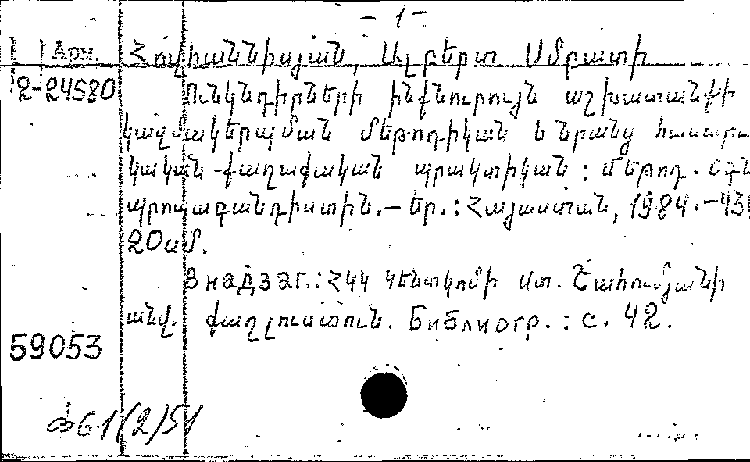 - 1 -
Арм. Հովհաննիսյան, Ալբերտ Սմբատի
2-24580 Ունկնդիրների ինքնուրույն աշխատանքի
կազմակերպման մեթոդիկան և նրանց հասարա-
կական-քաղաքական պրակտիկան : Մեթոդ. օգն.
պրոպագանդիստին. – Եր. : Հայաստան, 1984. – 43
20սմ.
В надзаг.: ՀԿԿ Կենտկոմի Ստ. Շահումյանի
անվ. քաղլուստուն. Библиогр. : с. 42.
59053
Ф61(2)51